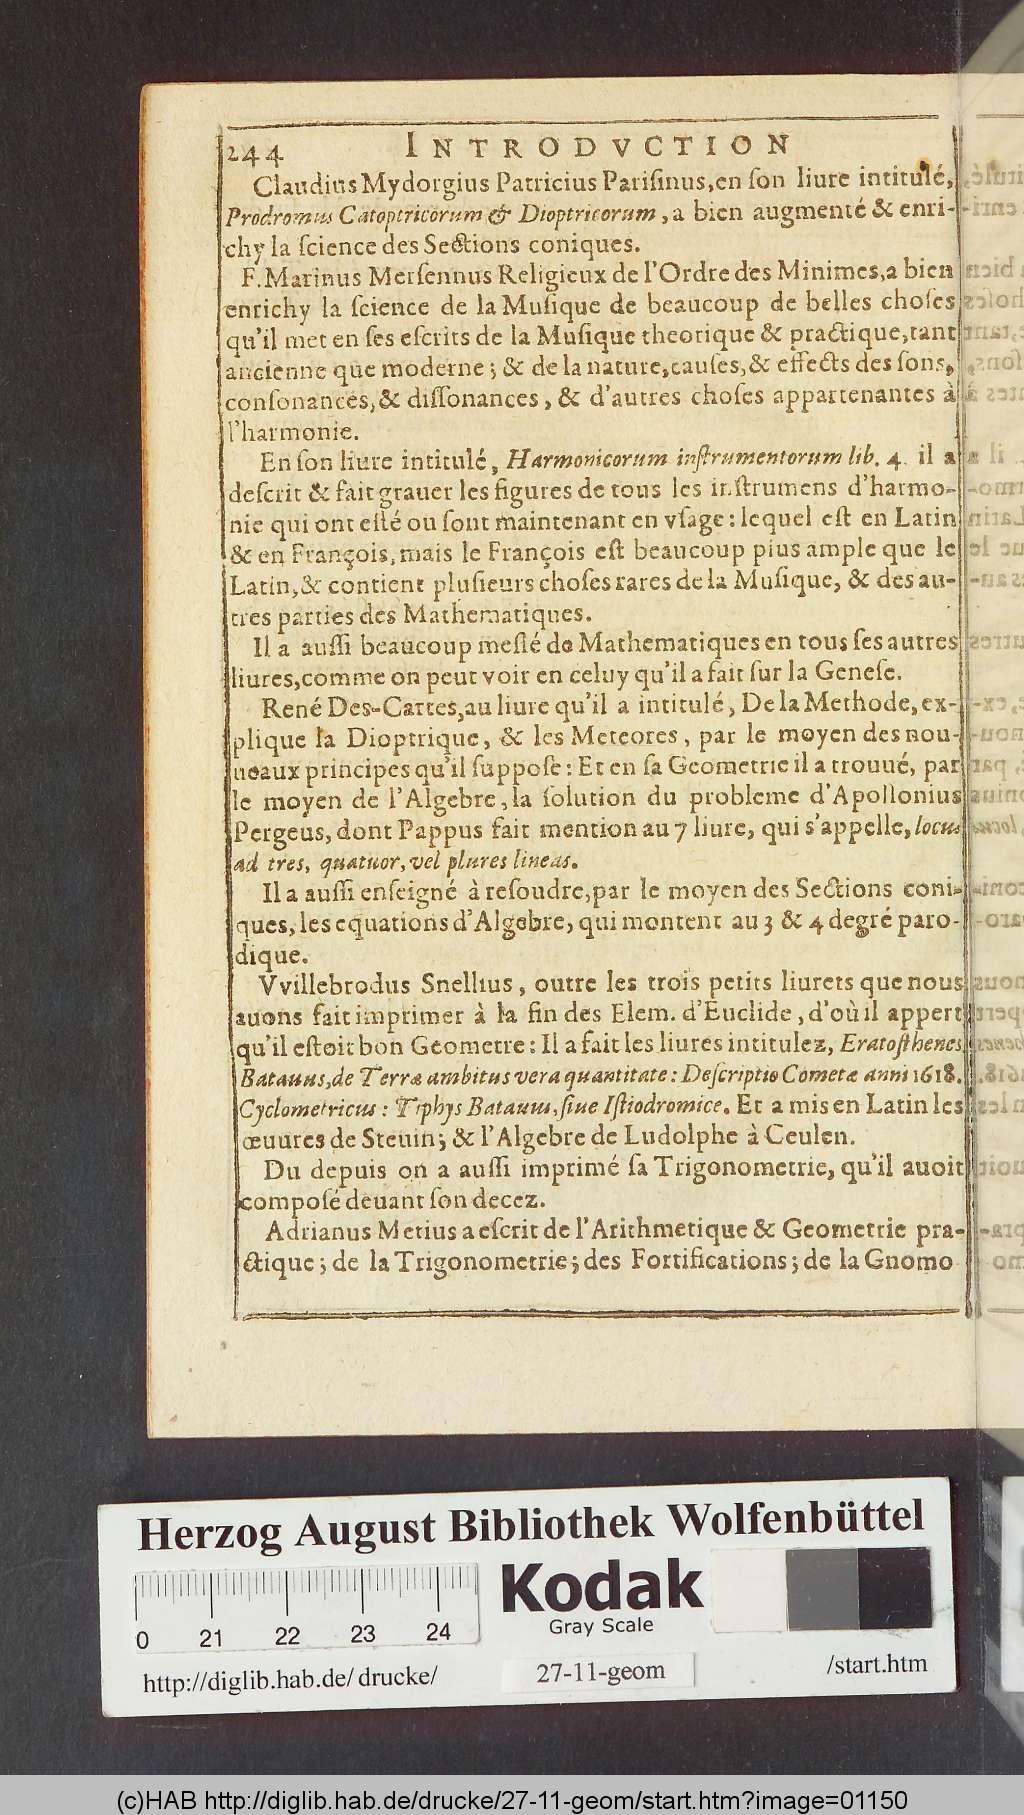 244 INTRODVCTION
Claudius Mydorgius Patricius Parisinus, en son liure intitulé,
Prodromus Catoptricorum & Dioptricorum, a bien augmenté & enri-
chy la science des Sections coniques.
F. Marinus Mersennus Religieux de l'Ordre des Minimes, a bien
enrichy la science de la Musique de beaucoup de belles choses
qu'il met en ses escrits de la Musique theorique & practique, tant
ancienne que moderne; & de la nature, causes, & effects des sons,
consonances, & dissonances, & d'autres choses appartenantes à
l'harmonie.
En son liure intitulé, Harmonicorum instrumentorum lib. 4. il a
descrit & fait grauer les figures de tous les instrumens d'harmo-
nie qui ont esté ou sont maintenant en vsage: lequel est en Latin
& en François, mais le François est beaucoup plus ample que le
Latin, & contient plusieurs choses rares de la Musique, & des au-
tres parties des Mathematiques.
Il a aussi beaucoup meslé de Mathematiques en tous ses autres
liures, comme on peut voir en celuy qu'il a fait sur la Genese.
René Des-Cartes, au liure qu'il a intitulé, De la Methode, ex-
plique la Dioptrique, & les Meteores, par le moyen des nou-
ueaux principes qu'il suppose: Et en sa Geometrie il a trouué, par
le moyen de l'Algebre, la solution du probleme d'Apollonius
Pergeus, dont Pappus fait mention au 7 liure, qui s'appelle, locus
ad tres, quatuor, vel plures lineas.
Il a aussi enseigné à resoudre, par le moyen des Sections coni-
ques, les equations d'Algebre, qui montent au 3 & 4 degré paro-
dique.
Vvillebrodus Snellius, outre les trois petits liurets que nous
auons fait imprimer à la fin des Elem. d'Euclide, d'où il appert
qu'il estoit bon Geometre: Il a fait les liures intitulez, Eratosthenes
Batauus, de Terræ ambitus vera quantitate: Descriptio Cometæ anni 1618.
Cyclometricus: Tiphys Batauus, siue Istiodromice. Et a mis en Latin les
œuures de Steuin; & l'Algebre de Ludolphe à Ceulen.
Du depuis on a aussi imprimé sa Trigonometrie, qu'il auoit
composé deuant son decez.
Adrianus Metius a escrit de l'Arithmetique & Geometrie pra-
ctique; de la Trigonometrie; des Fortifications; de la Gnomo
Herzog August Bibliothek Wolfenbüttel
Kodak
Gray Scale
0 21 22 23 24
http://diglib.hab.de/drucke/ 27-11-geom /start.htm
(c)HAB http://diglib.hab.de/drucke/27-11-geom/start.htm?image=01150